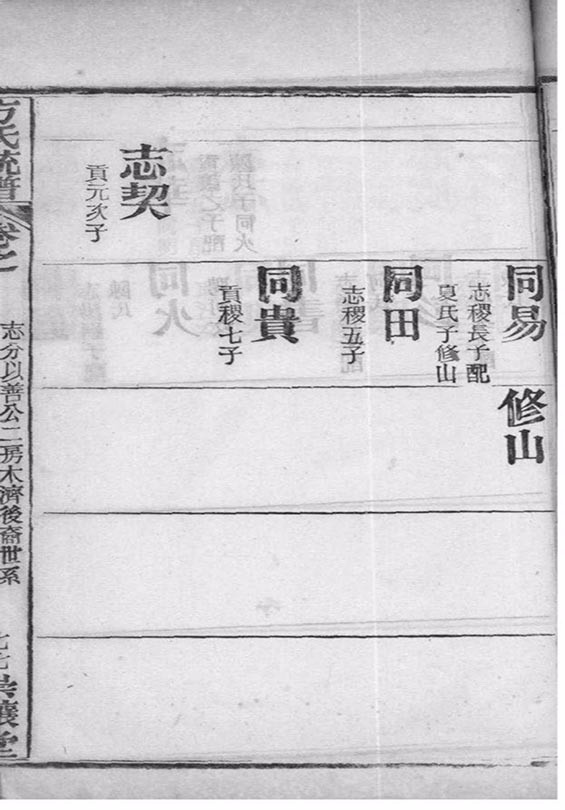 同易
志稷長子配
夏氏子修山
修山
同田
志稷五子
同貴
貢稷七子
志契
貢元次子
方氏統譜
卷之
志分以善公二房木濟後裔世系